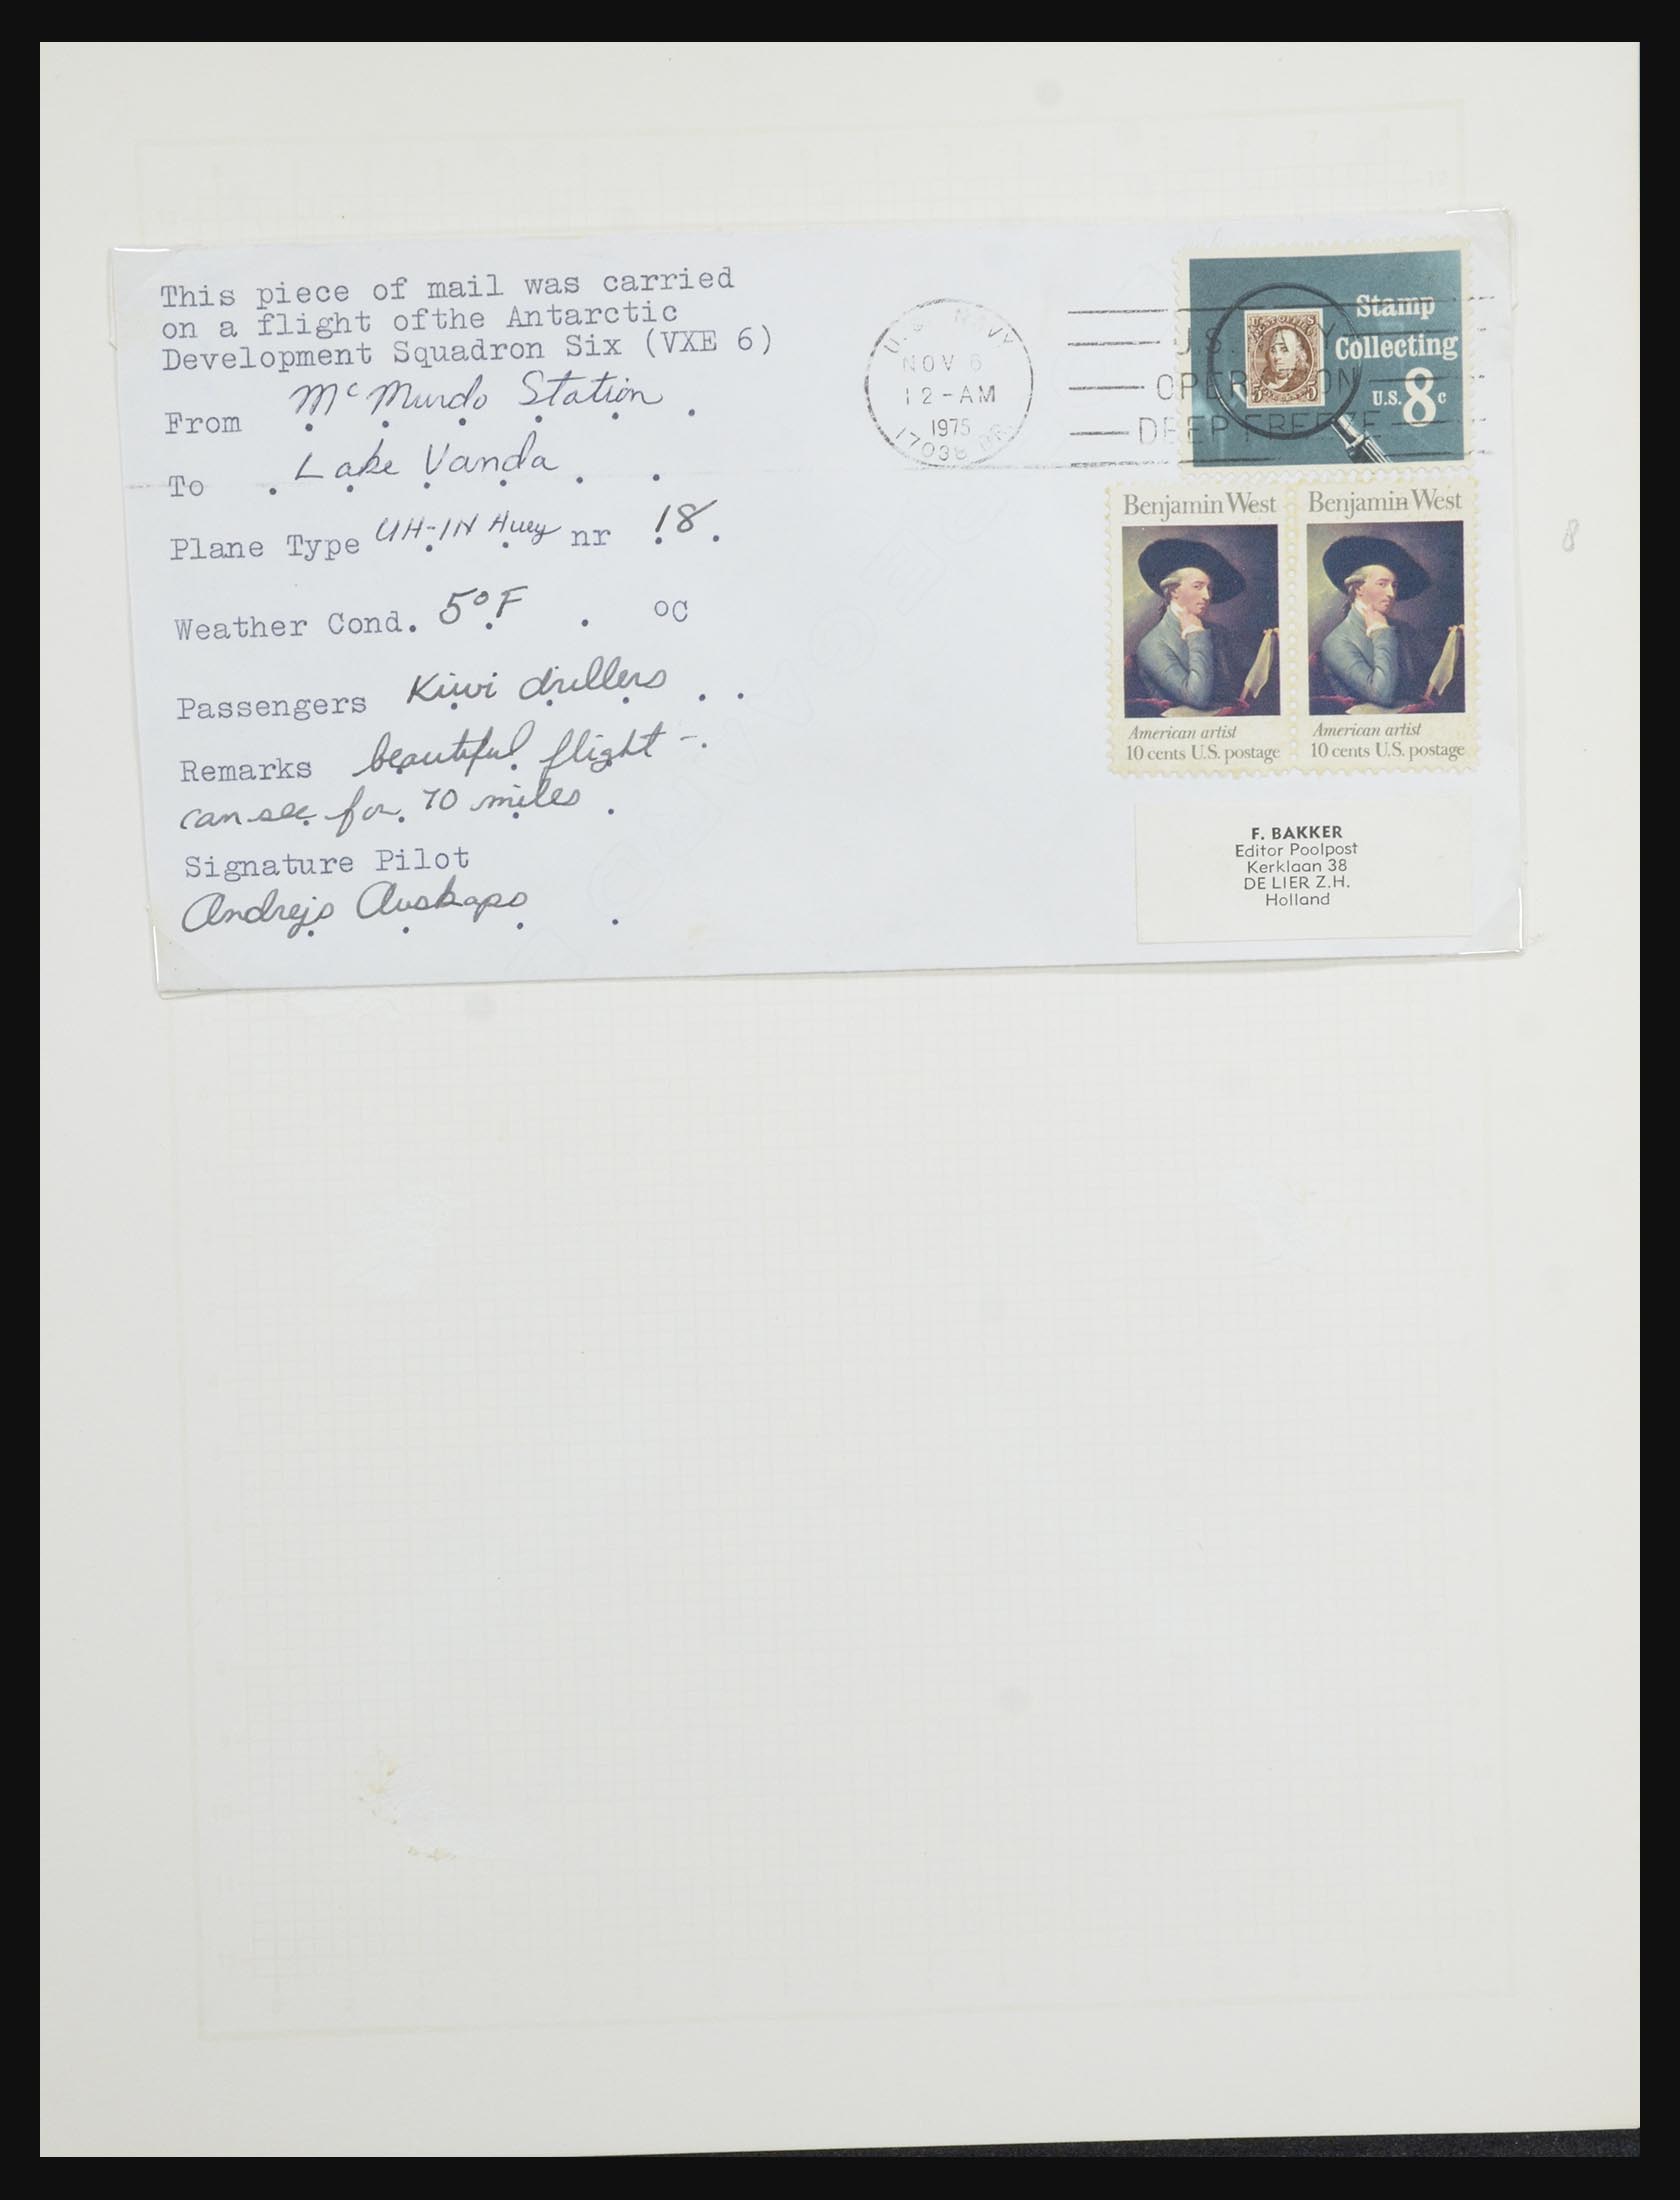 This piece of mail was carried
on a flight ofthe Antarctic
Development Squadron Six (VXE 6)
From McMurdo Station
To Lake Vanda
Plane Type UH-1N Huey nr 18
Weather Cond. 5°F °C
Passengers Kiwi drillers
Remarks beautiful flight -
can see for 70 miles
Signature Pilot
Andrejs Auskaps
U.S. NAVY
NOV 6
12-AM
1975
17038
U.S. NAVY
OPERATION
DEEP FREEZE
Stamp
Collecting
U.S. 8c
5 5
Benjamin West
American artist
10 cents U.S. postage
Benjamin West
American artist
10 cents U.S. postage
F. BAKKER
Editor Poolpost
Kerklaan 38
DE LIER Z.H.
Holland
8